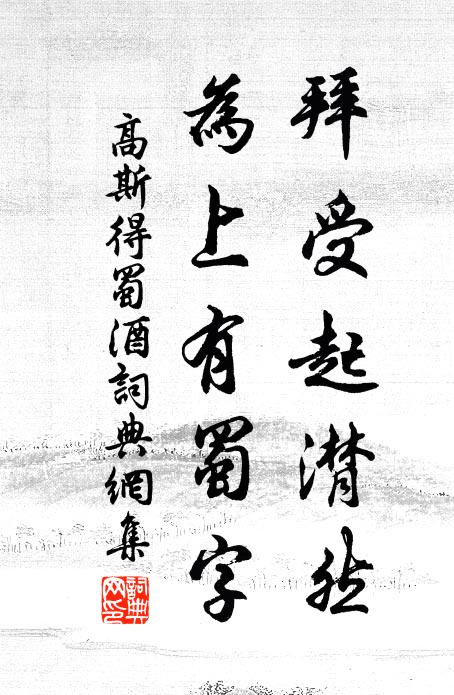 拜受起潸然
為上有蜀字
高斯得蜀酒詞典網集
詞典
网